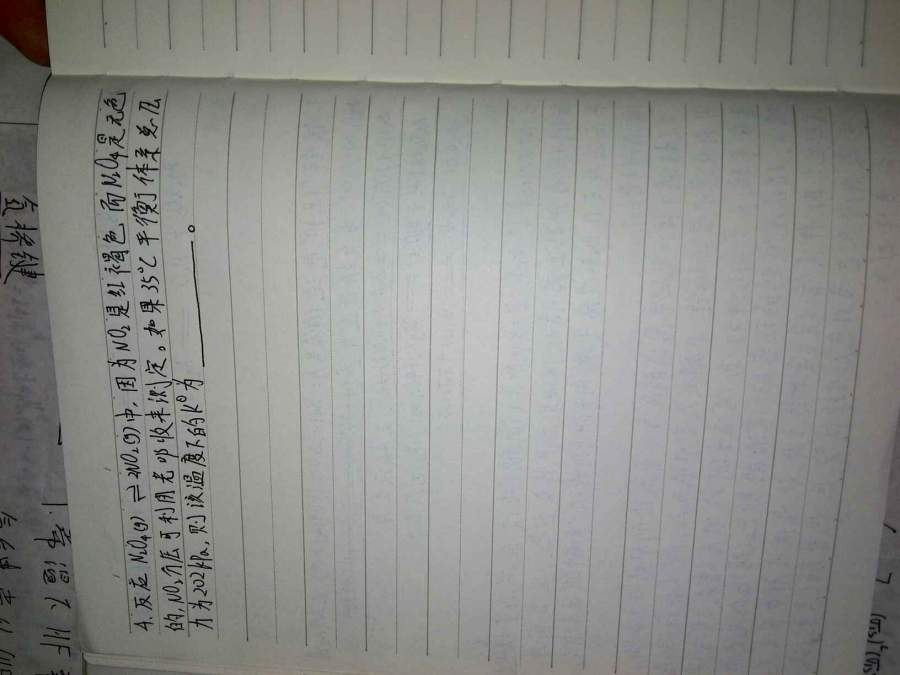 4. 反应 N₂O₄(g) ⇌ 2NO₂(g)中, 因为NO₂是红褐色, 而N₂O₄是无色
的, NO₂分压可利用光吸收来测定。如果35℃平衡体系总压
力为202kPa, 则该温度下的K⁰为 ________。